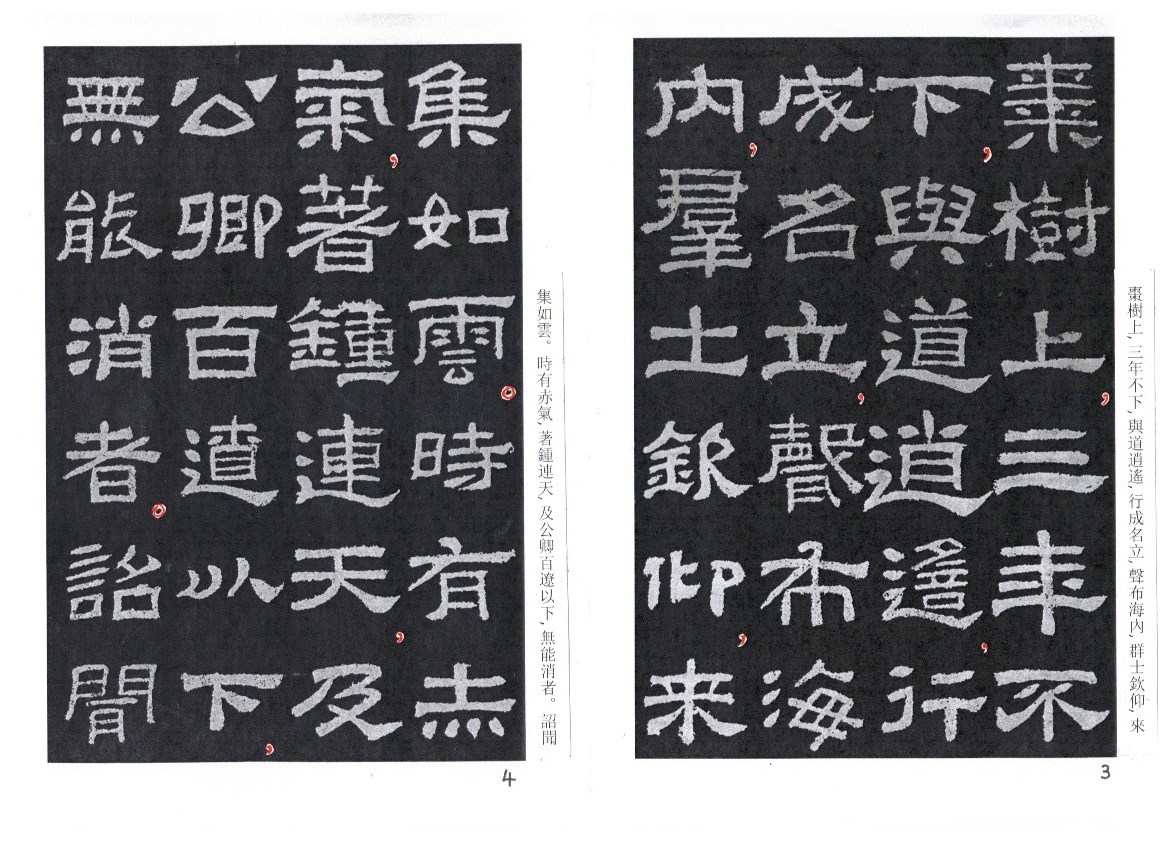 棗樹上、三年不下、與道逍遙、行成名立、聲布海內、群士欽仰、來
棗樹上，三年不
下，與道逍遙，行
成名立，聲布海
內，羣士欽仰，来
3
集如雲。時有赤氣、著鍾連天、及公卿百遼以下、無能消者。詔聞
集如雲。時有赤
氣，著鍾連天，及
公卿百遼以下，
無能消者。詔聞
4